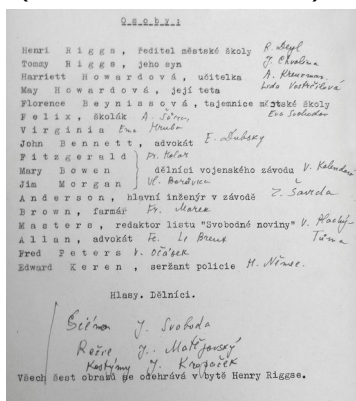 Osoby:
Henri Riggs, ředitel městské školy R. Deyl
Tommy Riggs, jeho syn J. Chvalina
Harriett Howardová, učitelka A. Kreuzman.
May Howardová, její teta Lída Vostrčilová
Florence Beynissová, tajemnice městské školy
Felix, školák A. Eva Svobodov
Virginia Ema Hrubá
John Bennett, advokát E. Dubský
Fitzgerald Fr. Kolář
Mary Bowen dělníci vojenského závodu V. Kalendová
Jim Morgan Vl. Borůvka
Anderson, hlavní inženýr v závodě Z. Šavrda
Brown, farmář Fr. Marek
Masters, redaktor listu "Svobodné noviny" V. Hlavatý
Allan, advokát Fr. Le Breux Tůma
Fred Peters V. Očásek
Edward Keren, seržant policie H. Němec.
Hlasy. Dělníci.
Scéna J. Svoboda
Režie J. Matějovský
Kostýmy J. Kropáček
Všech šest obrazů se odehrává v bytě Henry Riggse.